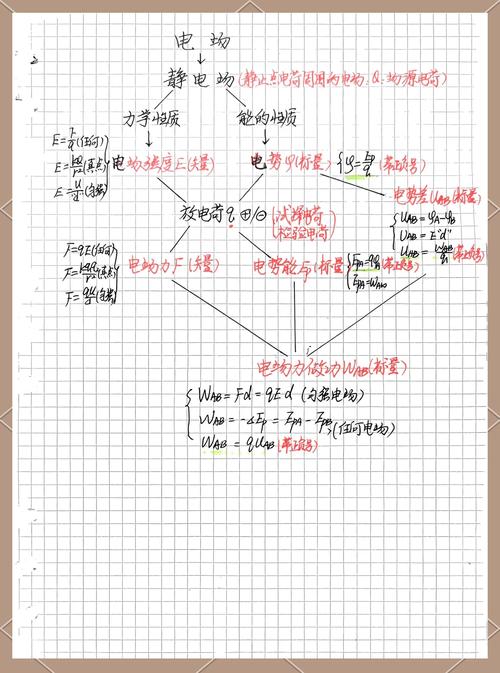 电场
静电场(静止点电荷周围的电场.Q:场源电荷)
力学性质
能的性质
E=F/q(任何)
E=kQ/r²(真点)
E=U/d(匀强)
电场强度E(矢量)
电势φ(标量)
{φ=Ep/q(带正负号)
电势差UAB(标量)
放电荷q
(试探电荷)
(检验电荷)
UAB=φA-φB
UAB=E"d"
UAB=WAB/q(带正负号)
F=qE(任何)
F=kQq/r²(真点)
F=qU/d(匀强)
电场力F(矢量)
电势能Ep(标量)
EpA=qφA(带正负号)
EpA=WA∞
电场力做功WAB(标量)
WAB=Fd=qEd(匀强电场)
WAB=-ΔEp=EpA-EpB
(任何电场)
WAB=qUAB(带正负号)